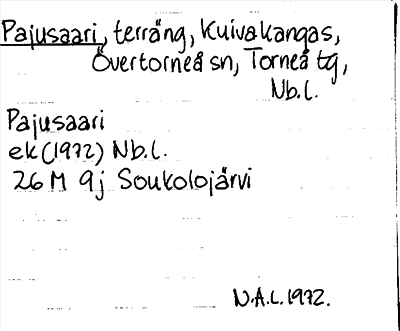 Pajusaari, terräng, Kuivakangas,
Övertorneå sn, Torneå tg,
Nb.l.
Pajusaari
ek (1972) Nb.l.
26 M 9j Soukolojärvi
N.A.L. 1972.